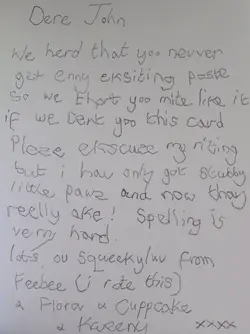 Dere John
We herd that yoo nevver
get enny eksiting poste
So we thort yoo mite like it
if we Cent yoo this card
Pleze ekscuze my riting
but i hav only got stubby
little pawz and now thay
reelly ake! Spelling is
verry hard.
Lots ov Squeekyluv from
Feebee (i rote this)
& Flora & Cuppcake
& Kareena
xxxx